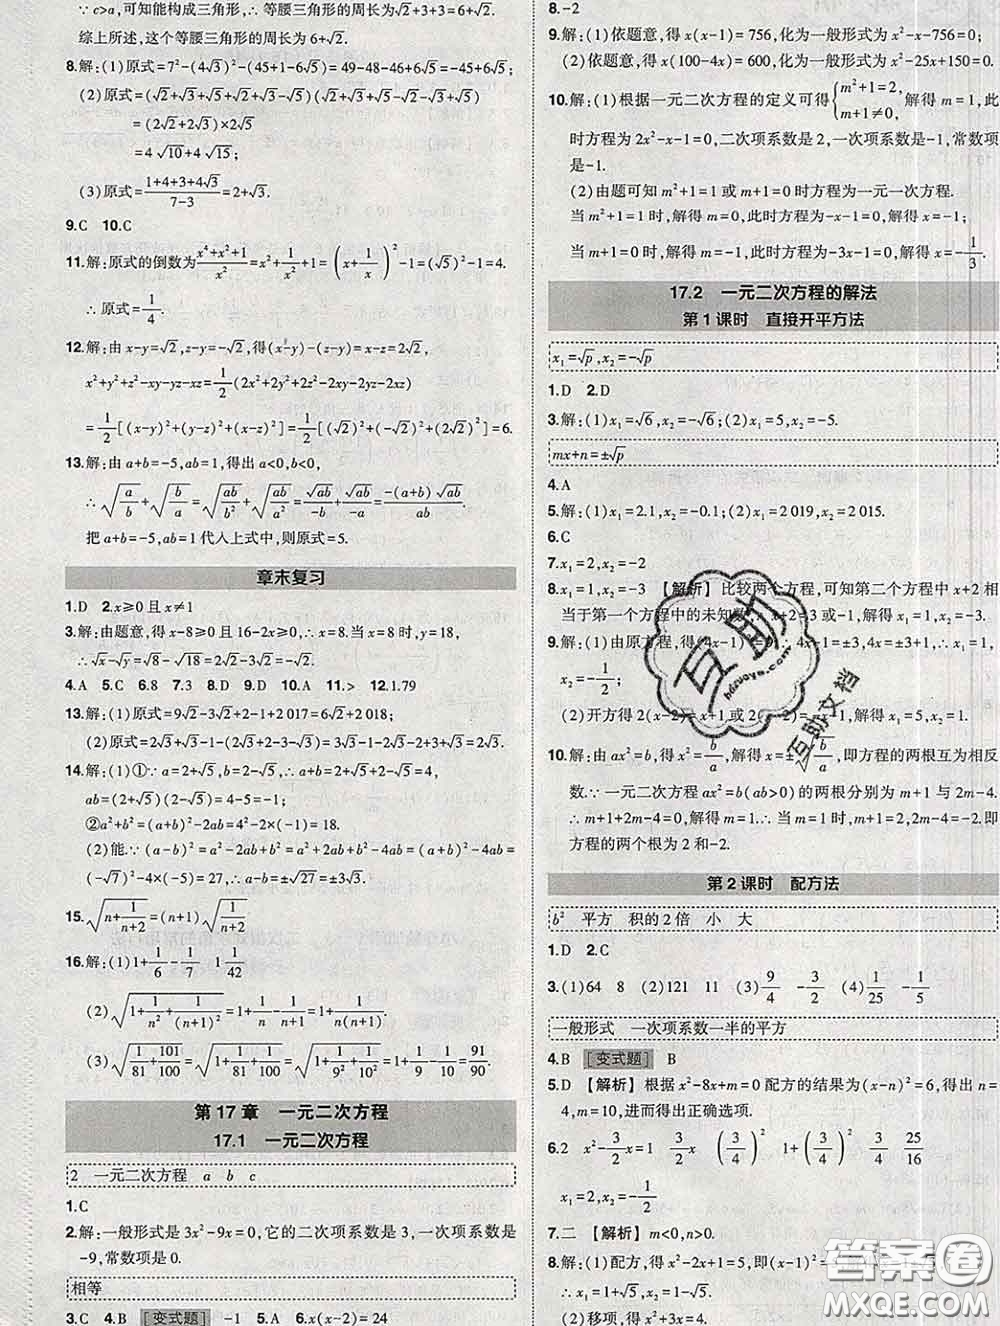 ∵c>a,可能构成三角形,∴等腰三角形的周长为√2+3+3=6+√2.
综上所述,这个等腰三角形的周长为6+√2.
8.解:(1)原式=7²-(4√3)²-(45+1-6√5)=49-48-46+6√5=-45+6√5;
(2)原式=(√2+√3+√5-√3+√2)(√2+√3-√5+√3-√2+√5)
=(2√2+2√3)×2√5
=4√10+4√15;
(3)原式=(1+4+3+4√3)/(7-3)=2+√3.
9.C 10.C
11.解:原式的倒数为(x⁴+x²+1)/x²=x²+1/x²+1=(x+1/x)²-1=(√5)²-1=4.
∴原式=1/4.
12.解:由x-y=√2,z-y=-√2,得(x-y)-(z-y)=x-z=2√2.
x²+y²+z²-xy-yz-xz=1/2(2x²+2y²+2z²-2xy-2yz-2xz)
=1/2[(x-y)²+(y-z)²+(x-z)²]=1/2[(√2)²+(-√2)²+(2√2)²]=6.
13.解:由a+b=-5,ab=1,得出a<0,b<0,
∴√(a/b)+√(b/a)=√(ab/b²)+√(ab/a²)=√ab/-b+√ab/-a=-(a+b)√ab/ab.
把a+b=-5,ab=1代入上式中,则原式=5.
章末复习
1.D 2.x≥0且x≠1
3.解:由题意,得x-8≥0且16-2x≥0,∴x=8.当x=8时,y=18,
∴√x-√y=√8-√18=2√2-3√2=-√2.
4.A 5.C 6.8 7.3 8.D 9.D 10.A 11.> 12.1.79
13.解:(1)原式=9√2-3√2+2-1+2 017=6√2+2 018;
(2)原式=2√3+√3-1-(2√3-2)+2-√3=3√3-1-2√3+2+2-√3=3.
14.解:(1)①∵a=2+√5,b=2-√5,∴a+b=2+√5+2-√5=4,
ab=(2+√5)(2-√5)=4-5=-1;
②a²+b²=(a+b)²-2ab=4²-2×(-1)=18.
(2)能.∵(a-b)²=a²+b²-2ab=a²+2ab+b²-4ab=(a+b)²-4ab=
(-√7)²-4×(-5)=27,∴a-b=±√27=±3√3.
15.√(n+1/(n+2))=(n+1)√(1/(n+2))
16.解:(1)1+1/6-1/7 1 1/42
(2)√(1+1/n²+1/(n+1)²)=1+1/n-1/(n+1)=1+1/n(n+1).
(3)√(1+1/81+101/100)=√(1+1/81+1/100)=√(1+1/9²+1/10²)=1+1/9-1/10=1 1/90=91/90.
第17章 一元二次方程
17.1 一元二次方程
2 一元二次方程 a b c
1.C
2.解:一般形式是3x²-9x=0,它的二次项系数是3,一次项系数是
-9,常数项是0.
相等
3.C 4.B [变式题] -1 5.A 6.x(x-2)=24
8.-2
9.解:(1)依题意,得x(x-1)=756,化为一般形式为x²-x-756=0;
(2)依题意,得x(100-4x)=600,化为一般形式为x²-25x+150=0.
10.解:(1)根据一元二次方程的定义可得{m²+1=2, m+1≠0,解得m=1,此
时方程为2x²-x-1=0,二次项系数是2,一次项系数是-1,常数项
是-1.
(2)由题可知m²+1=1或m+1=0时方程为一元一次方程.
当m²+1=1时,解得m=0,此时方程为-x-1=0,解得x=-1,
当m+1=0时,解得m=-1,此时方程为-3x-1=0,解得x=-1/3.
17.2 一元二次方程的解法
第1课时 直接开平方法
x₁=√p,x₂=-√p
1.D 2.D
3.解:(1)x₁=√6,x₂=-√6;(2)x₁=5,x₂=-5.
mx+n=±√p
4.A
5.解:(1)x₁=2.1,x₂=-0.1;(2)x₁=2 019,x₂=2 015.
6.C
7.x₁=2,x₂=-2
8.x₁=1,x₂=-3 【解析】比较两个方程,可知第二个方程中x+2相
当于第一个方程中的未知数,x+2=3或-1,∴x₁=1,x₂=-3.
9.解:(1)由原方程,得(4x-1)²=9,∴4x-1=±3,4x=±3+1,∴x₁=1,
x₂=-1/2;
(2)开方得2(x-2)=x+1或2(x-2)=-x-1,解得x₁=5,x₂=1.
10.解:由ax²=b,得x²=b/a,解得x=±√(b/a),即方程的两根互为相反
数.∵一元二次方程ax²=b(ab>0)的两根分别为m+1与2m-4,
∴m+1+2m-4=0,解得m=1.∴当m=1时,m+1=2,2m-4=-2,即
方程的两个根为2和-2.
第2课时 配方法
b² 平方 积的2倍 小 大
1.D 2.C
3.(1)64 8 (2)121 11 (3)9/4 -3/2 (4)1/25 -1/5
一般形式 一次项系数一半的平方
4.B [变式题] B
5.D 【解析】根据x²-8x+m=0配方的结果为(x-n)²=6,得出n=
4,m=10,进而得出正确选项.
6.2 x²-3/2x=1 3/4 (3/4)² 1+(3/4)² 3/4 25/16
x₁=2,x₂=-1/2
7.二 【解析】m<0,n>0.
8.解:(1)配方,得x²-2x+1=5,即(x-1)²
∴x₁=1+√5,x₂=1-√5;
(2)移项,得x²
互助
hdzuoye.com
互助文档
答案圈
MXQE.COM